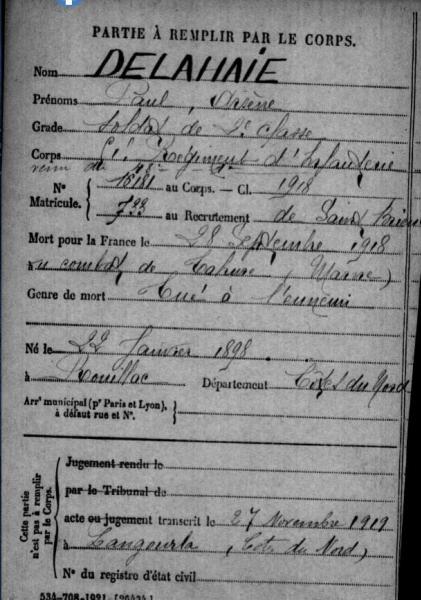 PARTIE À REMPLIR PAR LE CORPS.
Nom DELAHAIE
Prénoms Paul, Arsène
Grade Soldat de 2e classe
Corps Régiment d'Infanterie
venu du
Nos Matricule. au Corps. — Cl. 1918
au Recrutement de Saint Brieuc
Mort pour la France le 28 Septembre 1918
à au combat de Tahure (Marne)
Genre de mort Tué à l'ennemi
Né le 22 Janvier 1898
à Rouillac Département Côtes du Nord
Arrt municipal (pr Paris et Lyon),
à défaut rue et No.
Cette partie n'est pas à remplir par le Corps.
Jugement rendu le
par le Tribunal de
acte ou jugement transcrit le 27 Novembre 1919
à Langourla (Côtes du Nord)
No du registre d'état civil
534-708-1921. [26434]